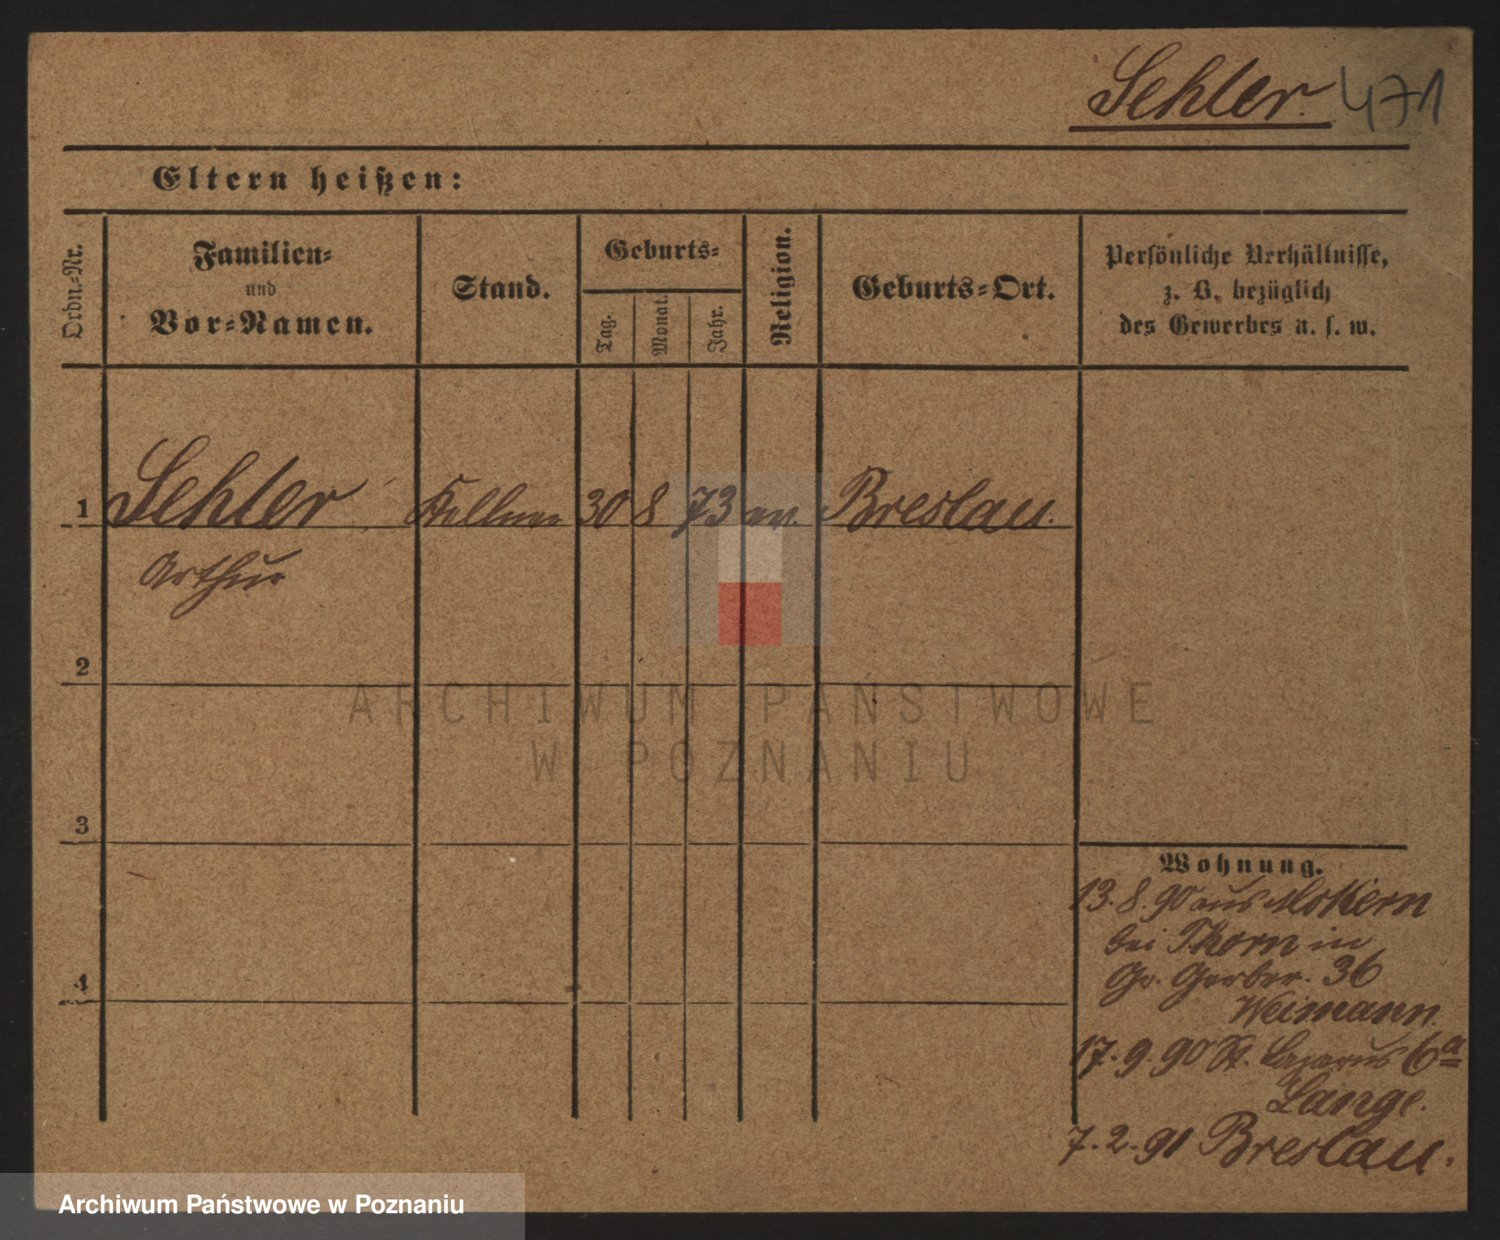 Sehler. 471
Eltern heißen:
Ordn.-Nr.
Familien-
und
Vor-Namen.
Stand.
Geburts-
Tag.
Monat.
Jahr.
Religion.
Geburts-Ort.
Persönliche Verhältnisse,
z. B. bezüglich
des Gewerbes u. s. w.
1 Sehler Kellner 30 8 73 ev. Breslau.
Arthur
2
3
4
Wohnung.
13.8.90 aus Mokern
bei Thorn in
Gr. Gerber. 36
Weimann.
17.9.90 St. Lazarus 6a
Lange.
7.2.91 Breslau.
ARCHIWUM PAŃSTWOWE
W POZNANIU
Archiwum Państwowe w Poznaniu